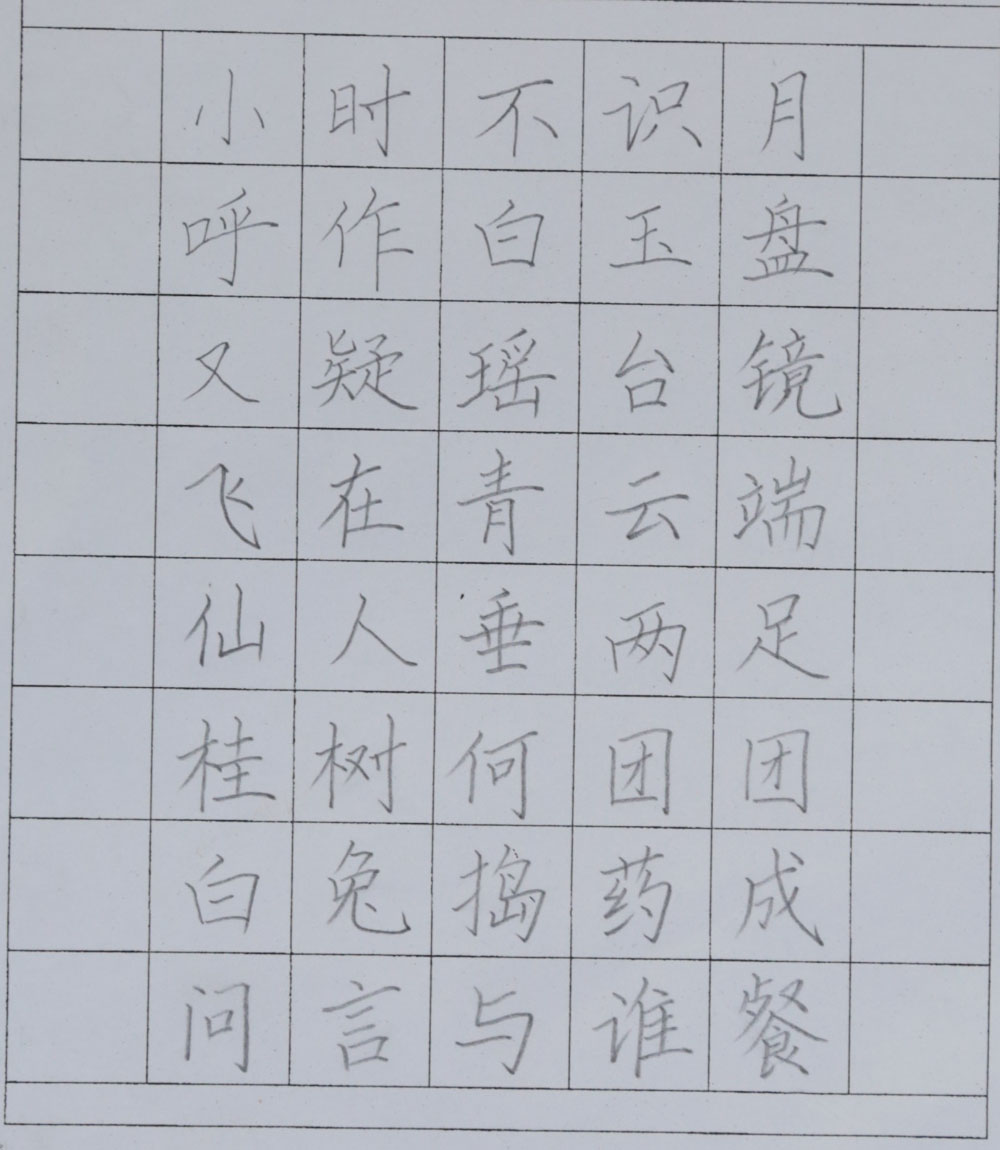 小时不识月
呼作白玉盘
又疑瑶台镜
飞在青云端
仙人垂两足
桂树何团团
白兔捣药成
问言与谁餐